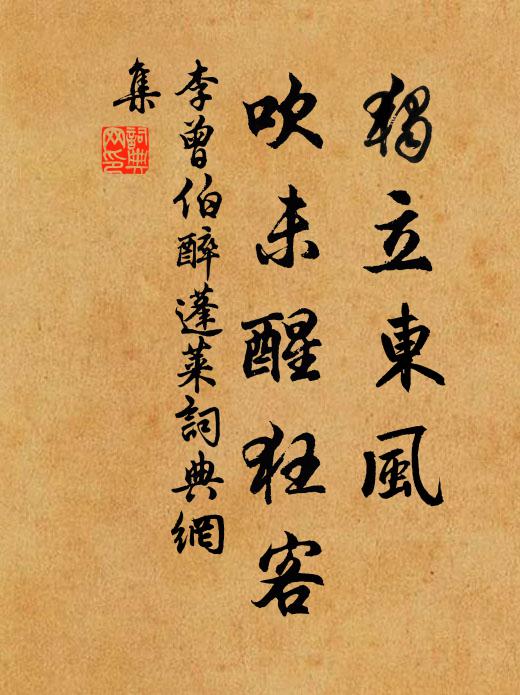 獨立東風
吹未醒狂客
李曾伯醉蓬萊詞典網
集
詞典
网印